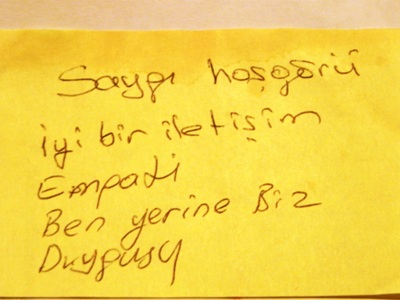 Saygı hoşgörü
iyi bir iletişim
Empati
Ben yerine Biz
Duygusu